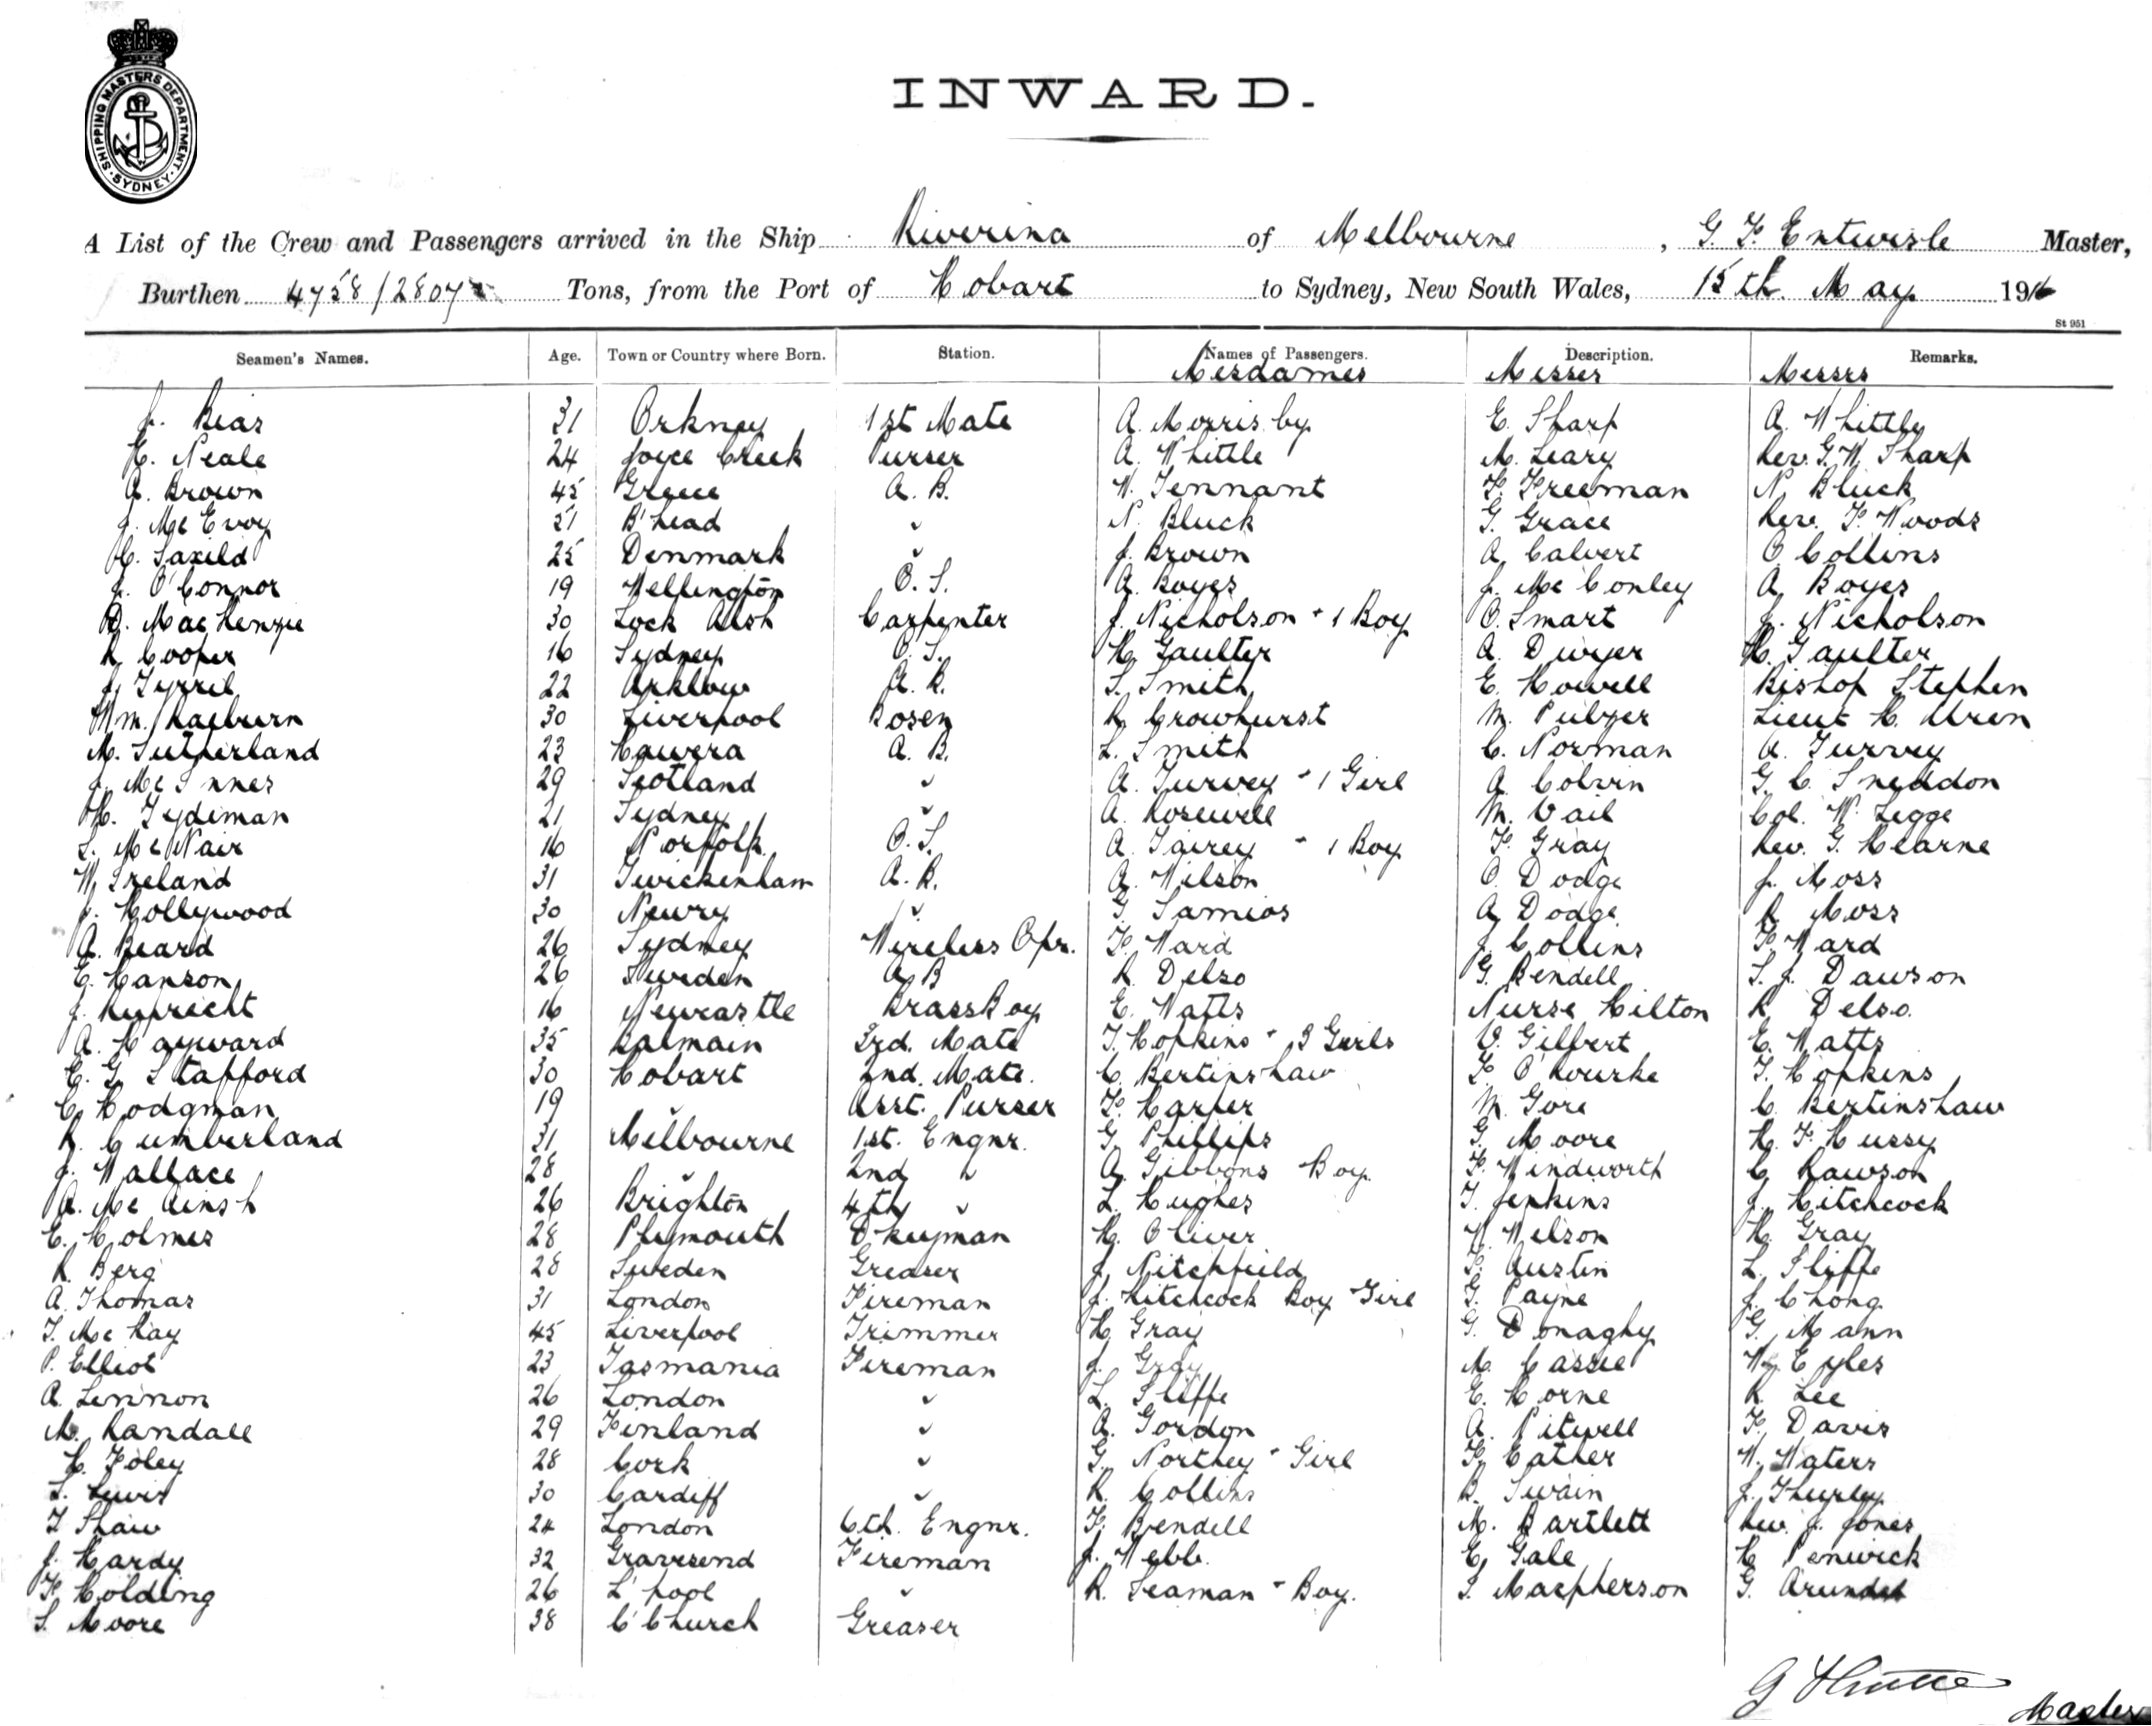 SHIPPING MASTERS DEPARTMENT. SYDNEY.
INWARD.
A List of the Crew and Passengers arrived in the Ship Riverina of Melbourne, G. F. Entwisle Master,
Burthen 4758/2807 Tons, from the Port of Hobart to Sydney, New South Wales, 15th. May 1916
St 951
Seamen's Names. Age. Town or Country where Born. Station. Names of Passengers. Description. Remarks.
Mesdames Messrs Messrs
J. 31 Orkney 1st Mate A. Morrisby E. Sharp A. Whittle
C. Neale 24 Joyce Creek Purser A. Whittle M. Leary Rev. G. W. Sharp
A. Brown 45 Greece A. B. W. Tennant F. Freeman N. Bluck
J. McEvoy 51 B'head " N. Bluck G. Grace Rev. F. Woods
C. Saxild 25 Denmark " J. Brown A. Calvert O Collins
J. O'Connor 19 Wellington O. S. A. Boyes J. McConley A Boyes
D. MacKenzie 30 Lock Alsh Carpenter J. Nicholson + 1 Boy O. Smart J. Nicholson
R. Cooper 16 Sydney O. S. H. Gaulter A. Dwyer H. Gaulter
J. Tyrril 22 Arklow A. B. S. Smith E. Howell Bishop Stephen
Wm. Raeburn 30 Liverpool Bosen R. Crowhurst M. Pulyer Lieut H. Uren
M. Sutherland 23 Hawera A. B. L. Smith C. Norman A. Turvey
J. McInnes 29 Scotland " A. Turvey + 1 Girl A. Colvin G. C. Sneddon
H. Tydiman 21 Sydney " A. Rosewell M. Vail Col. W. Legge
L. McNair 16 Norfolk O. S. A. Tairey + 1 Boy F. Gray Rev. G. Hearne
W. Ireland 31 Twickenham A. B. A. Wilson O. Dodge J. Moss
J. Hollywood 30 Newry " G. Samios A. Dodge R. Moss
A. Beard 26 Sydney Wireless Opr. F. Ward J. Collins F. Ward
C. Hanson 26 Sweden A B R. Delso G. Bendell S. J. Dawson
J. Ruprecht 16 Newcastle Brass Boy E. Watts Nurse Hilton R Delso.
A. Hayward 35 Balmain 3rd. Mate T. Hopkins + 3 Girls V. Gilbert E. Watts
E. G. Stafford 30 Hobart 2nd. Mate. C. Bertinshaw F. O'Rourke T. Hopkins
C. Hodgman 19 " Asst. Purser F. Harper M. Gore C. Bertinshaw
R. Cumberland 31 Melbourne 1st. Engnr. G. Phillips G. Moore H. F. Hussy
J. Wallace 28 " 2nd " A. Gibbons Boy. F. Windworth C. Rawson
A. McAinsh 26 Brighton 4th " L. Hughes T. Jenkins J. Hitchcock
C. Holmes 28 Plymouth D'keyman H. Oliver W. Wilson H. Gray
R. Berg 28 Sweden Greaser J. Nitchfield F. Austin L. Iliffe
A. Thomas 31 London Fireman J. Hitchcock Boy Girl G. Payne J. Chong
T. McKay 45 Liverpool Trimmer H. Gray G. Donaghy G. Mann
P. Elliot 23 Tasmania Fireman J. Gray M. Cassie Wm Eyles
A. Lennon 26 London " L. Iliffe E. Horne R. Lee
M. Randall 29 Finland " A. Gordon A. Pitwell F. Davis
H. Foley 28 Cork " G. Northey + Girl F. Eather W. Waters
L. Lewis 30 Cardiff " R. Collins B. Swain J. Thurley
T Shaw 24 London 6th. Engnr. F. Bendell M. Bartlett Rev. J. Jones
J. Hardy 32 Gravesend Fireman J. Webb. E. Gale C. Penwick
F. Holding 26 L'pool " R. Seaman + Boy. S. Macpherson G. Arundel
S. Moore 38 C'Church Greaser
Master